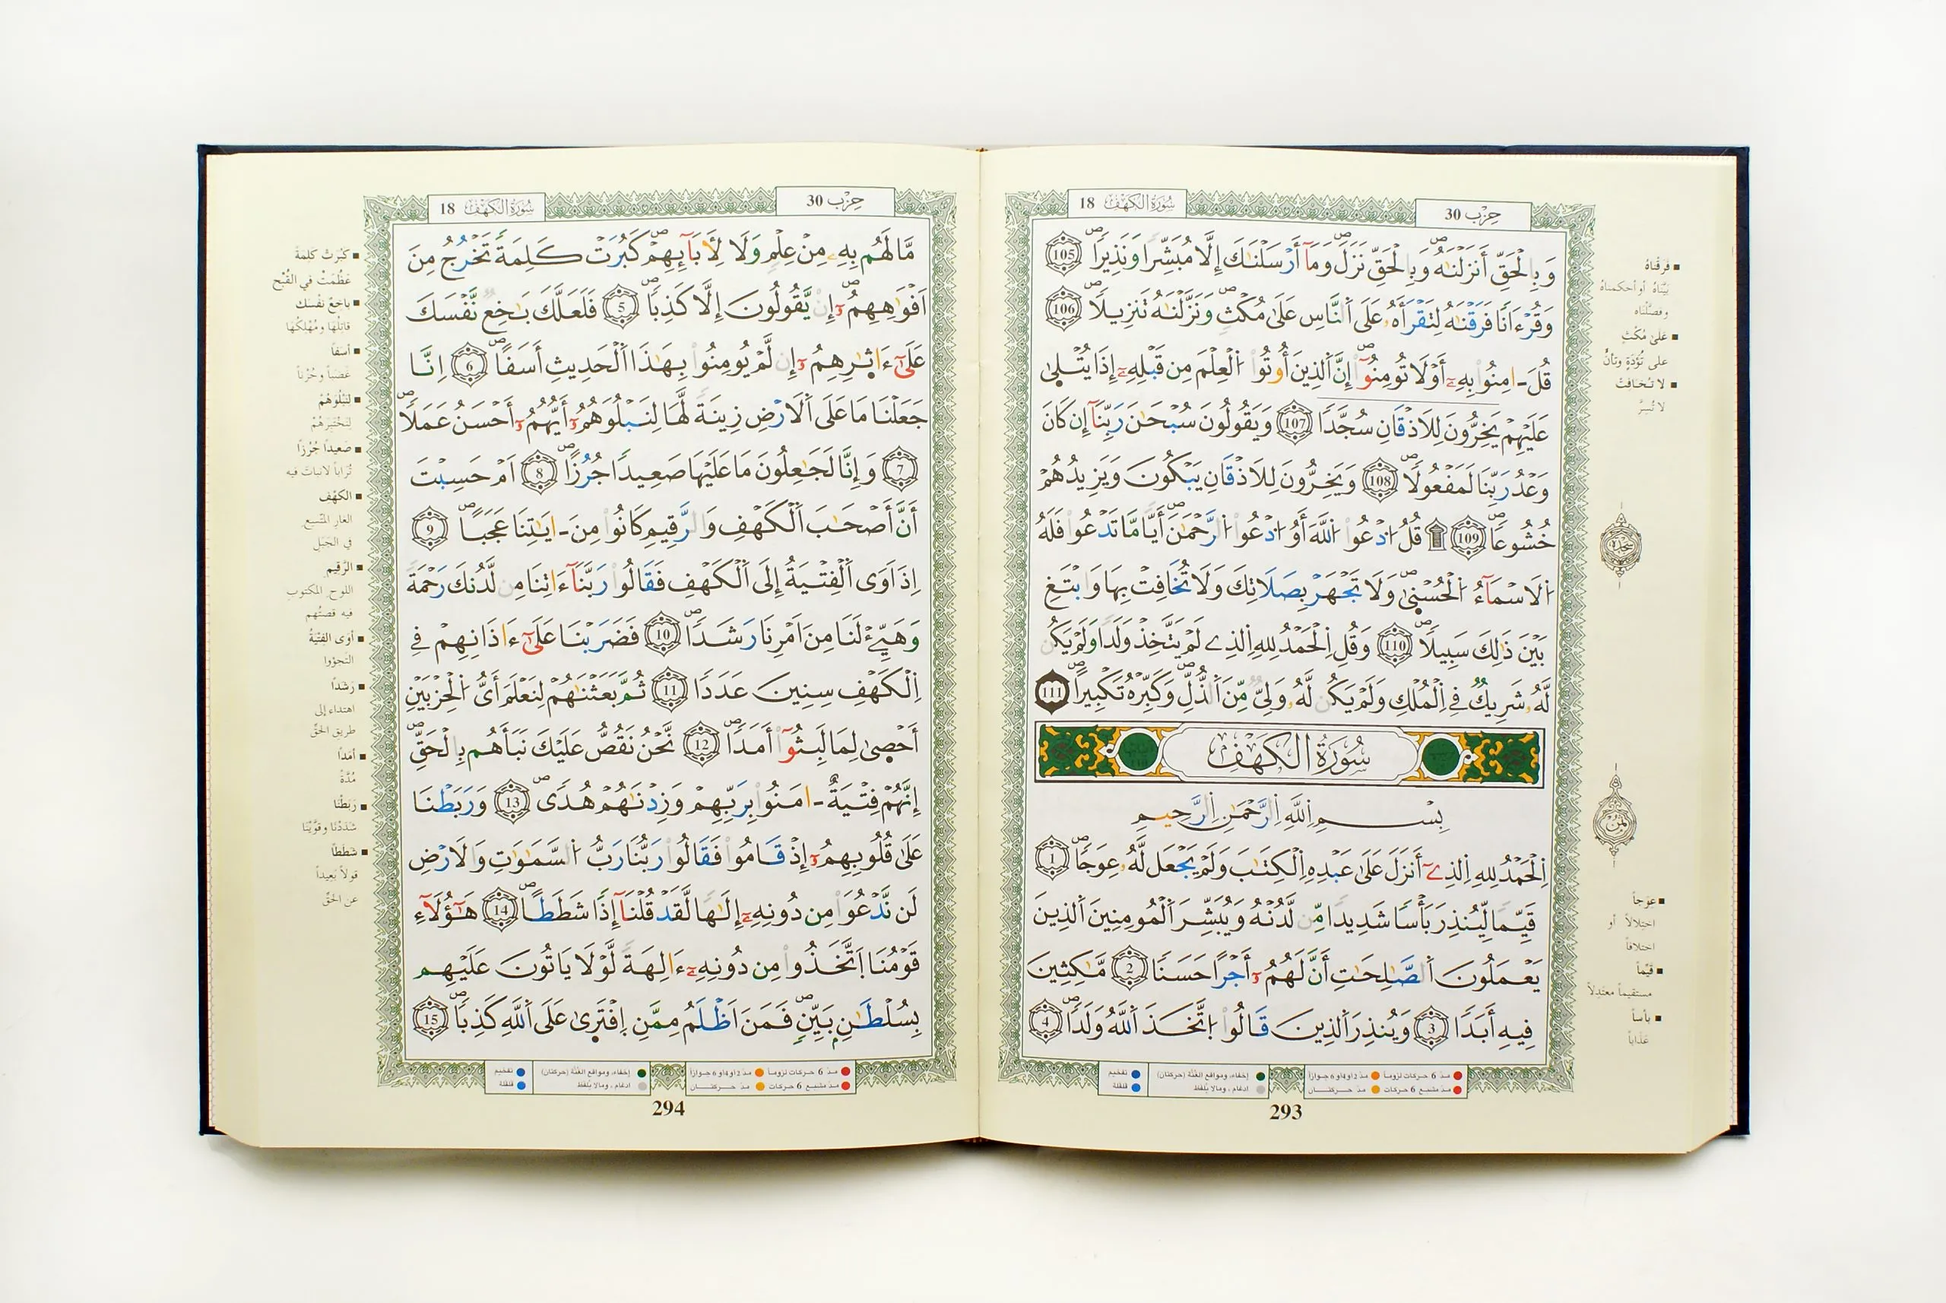 سُورَةُ الكَهْف 18
حِزْب 30
وَبِالْحَقِّ أَنزَلْنَٰهُ وَبِالْحَقِّ نَزَلَ وَمَآ أَرْسَلْنَٰكَ إِلَّا مُبَشِّرًا وَنَذِيرًا 105
وَقُرْءَانًا فَرَقْنَٰهُ لِتَقْرَأَهُۥ عَلَى اَلنَّاسِ عَلَىٰ مُكْثٍ وَنَزَّلْنَٰهُ تَنزِيلًا 106
قُلَ ـ امِنُوا بِهِۦٓ أَوْ لَا تُومِنُوٓا إِنَّ اَلذِينَ أُوتُوا اُلْعِلْمَ مِن قَبْلِهِۦٓ إِذَا يُتْلَىٰ
عَلَيْهِمْ يَخِرُّونَ لِلَاذْقَانِ سُجَّدًا 107 وَيَقُولُونَ سُبْحَٰنَ رَبِّنَآ إِن كَانَ
وَعْدُ رَبِّنَا لَمَفْعُولًا 108 وَيَخِرُّونَ لِلَاذْقَانِ يَبْكُونَ وَيَزِيدُهُمْ
خُشُوعًا 109 قُلُ اُدْعُوا اُللَّهَ أَوُ اُدْعُوا اُلرَّحْمَٰنَ أَيًّا مَّا تَدْعُوا فَلَهُ
اُلَاسْمَآءُ اُلْحُسْنَىٰ وَلَا تَجْهَرْ بِصَلَاتِكَ وَلَا تُخَافِتْ بِهَا وَابْتَغِ
بَيْنَ ذَٰلِكَ سَبِيلًا 110 وَقُلِ اِلْحَمْدُ لِلهِ اِلذِے لَمْ يَتَّخِذْ وَلَدًا وَلَمْ يَكُن
لَّهُۥ شَرِيكٌ فِي اِلْمُلْكِ وَلَمْ يَكُن لَّهُۥ وَلِيٌّ مِّنَ اَلذُّلِّ وَكَبِّرْهُ تَكْبِيرًا 111
سُورَةُ الكَهْفِ
بِسْمِ اِللَّهِ اِلرَّحْمَٰنِ اِلرَّحِيمِ
اِلْحَمْدُ لِلهِ اِلذِےٓ أَنزَلَ عَلَىٰ عَبْدِهِ اِلْكِتَٰبَ وَلَمْ يَجْعَل لَّهُۥ عِوَجًا 1
قَيِّمًا لِّيُنذِرَ بَأْسًا شَدِيدًا مِّن لَّدُنْهُ وَيُبَشِّرَ اَلْمُومِنِينَ اَلذِينَ
يَعْمَلُونَ اَلصَّٰلِحَٰتِ أَنَّ لَهُمُۥٓ أَجْرًا حَسَنًا 2 مَّٰكِثِينَ
فِيهِ أَبَدًا 3 وَيُنذِرَ اَلذِينَ قَالُوا اُتَّخَذَ اَللَّهُ وَلَدًا 4
فَرَقْنَاهُ
بَيَّنَّاهُ أو أحكمناه
وفصَّلْناه
عَلَىٰ مُكْثٍ
على تُؤَدَةٍ وتَأَنٍّ
لا تُخَافِتْ
لا تُسِرَّ
عِوَجاً
اختِلالاً أو
اختلافاً
قَيِّماً
مستقيماً معتدِلاً
بأساً
عَذَاباً
مدّ 6 حركات لزوماً
مدّ 2 أو 4 أو 6 جوازاً
إخفاء، ومواقع الغُنَّة (حركتان)
تفخيم
مدّ مشبع 6 حركات
مدّ حركتان
إدغام، وما لا يُلفَظ
قلقلة
293
سُورَةُ الكَهْف 18
حِزْب 30
مَّا لَهُم بِهِۦ مِنْ عِلْمٍ وَلَا لِأَبَآئِهِمْ كَبُرَتْ كَلِمَةً تَخْرُجُ مِنَ
اَفْوَٰهِهِمُۥٓ إِنْ يَّقُولُونَ إِلَّا كَذِبًا 5 فَلَعَلَّكَ بَٰخِعٌ نَّفْسَكَ
عَلَىٰٓ ءَاثَٰرِهِمُۥٓ إِن لَّمْ يُومِنُوا بِهَٰذَا اَلْحَدِيثِ أَسَفًا 6 اِنَّا
جَعَلْنَا مَا عَلَى اَلَارْضِ زِينَةً لَّهَا لِنَبْلُوَهُمُۥٓ أَيُّهُمُۥٓ أَحْسَنُ عَمَلًا
7 وَإِنَّا لَجَٰعِلُونَ مَا عَلَيْهَا صَعِيدًا جُرُزًا 8 اَمْ حَسِبْتَ
أَنَّ أَصْحَٰبَ اَلْكَهْفِ وَالرَّقِيمِ كَانُوا مِنَ ـ ايَٰتِنَا عَجَبًا 9
إِذَ اَوَى اَلْفِتْيَةُ إِلَى اَلْكَهْفِ فَقَالُوا رَبَّنَآ ءَاتِنَا مِن لَّدُنكَ رَحْمَةً
وَهَيِّےءْ لَنَا مِنَ اَمْرِنَا رَشَدًا 10 فَضَرَبْنَا عَلَىٰٓ ءَاذَانِهِمْ فِے
اِلْكَهْفِ سِنِينَ عَدَدًا 11 ثُمَّ بَعَثْنَٰهُمْ لِنَعْلَمَ أَيُّ اُلْحِزْبَيْنِ
أَحْصَىٰ لِمَا لَبِثُوٓا أَمَدًا 12 نَّحْنُ نَقُصُّ عَلَيْكَ نَبَأَهُم بِالْحَقِّ
إِنَّهُمْ فِتْيَةٌ ـ امَنُوا بِرَبِّهِمْ وَزِدْنَٰهُمْ هُدًى 13 وَرَبَطْنَا
عَلَىٰ قُلُوبِهِمُۥٓ إِذْ قَامُوا فَقَالُوا رَبُّنَا رَبُّ اُلسَّمَٰوَٰتِ وَالَارْضِ
لَن نَّدْعُوَا مِن دُونِهِۦٓ إِلَٰهًا لَّقَد قُّلْنَآ إِذًا شَطَطًا 14 هَٰٓؤُلَآءِ
قَوْمُنَا اَتَّخَذُوا مِن دُونِهِۦٓ ءَالِهَةً لَّوْلَا يَاتُونَ عَلَيْهِم
بِسُلْطَٰنٍ بَيِّنٍ فَمَنَ اَظْلَمُ مِمَّنِ اِفْتَرَىٰ عَلَى اَللَّهِ كَذِبًا 15
كَبُرَتْ كَلِمَةً
عَظُمَتْ في القُبْح
باخِعٌ نَفْسَك
قاتِلُهَا ومُهْلِكُهَا
أسَفاً
غضباً وحُزْناً
لِنَبْلُوَهُمْ
لِنَخْتَبِرَهُمْ
صَعِيداً جُرُزاً
تُرَاباً لا نبات فيه
الكَهْف
الغار المتّسِع
في الجَبَل
الرَّقيم
اللوح المكتوب
فيه قصتُهم
أوَى الفِتْيَةُ
التجؤوا
رَشَداً
اهتداءً إلى
طريق الحقِّ
أمَداً
مُدَّةً
رَبَطْنَا
شدَدْنا وقوَّيْنا
شَطَطاً
قولاً بَعيداً
عن الحَقّ
مدّ 6 حركات لزوماً
مدّ 2 أو 4 أو 6 جوازاً
إخفاء، ومواقع الغُنَّة (حركتان)
تفخيم
مدّ مشبع 6 حركات
مدّ حركتان
إدغام، وما لا يُلفَظ
قلقلة
294